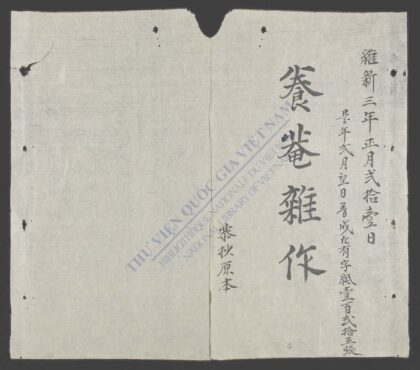 維新三年正月貳拾壹日
是年貳月初四日書成在有字紙壹百貳拾五張
養菴雜作
恭狄原本
THƯ VIỆN QUỐC GIA VIỆT NAM
BIBLIOTHÈQUE NATIONALE DU VIETNAM
NATIONAL LIBRARY OF VIETNAM